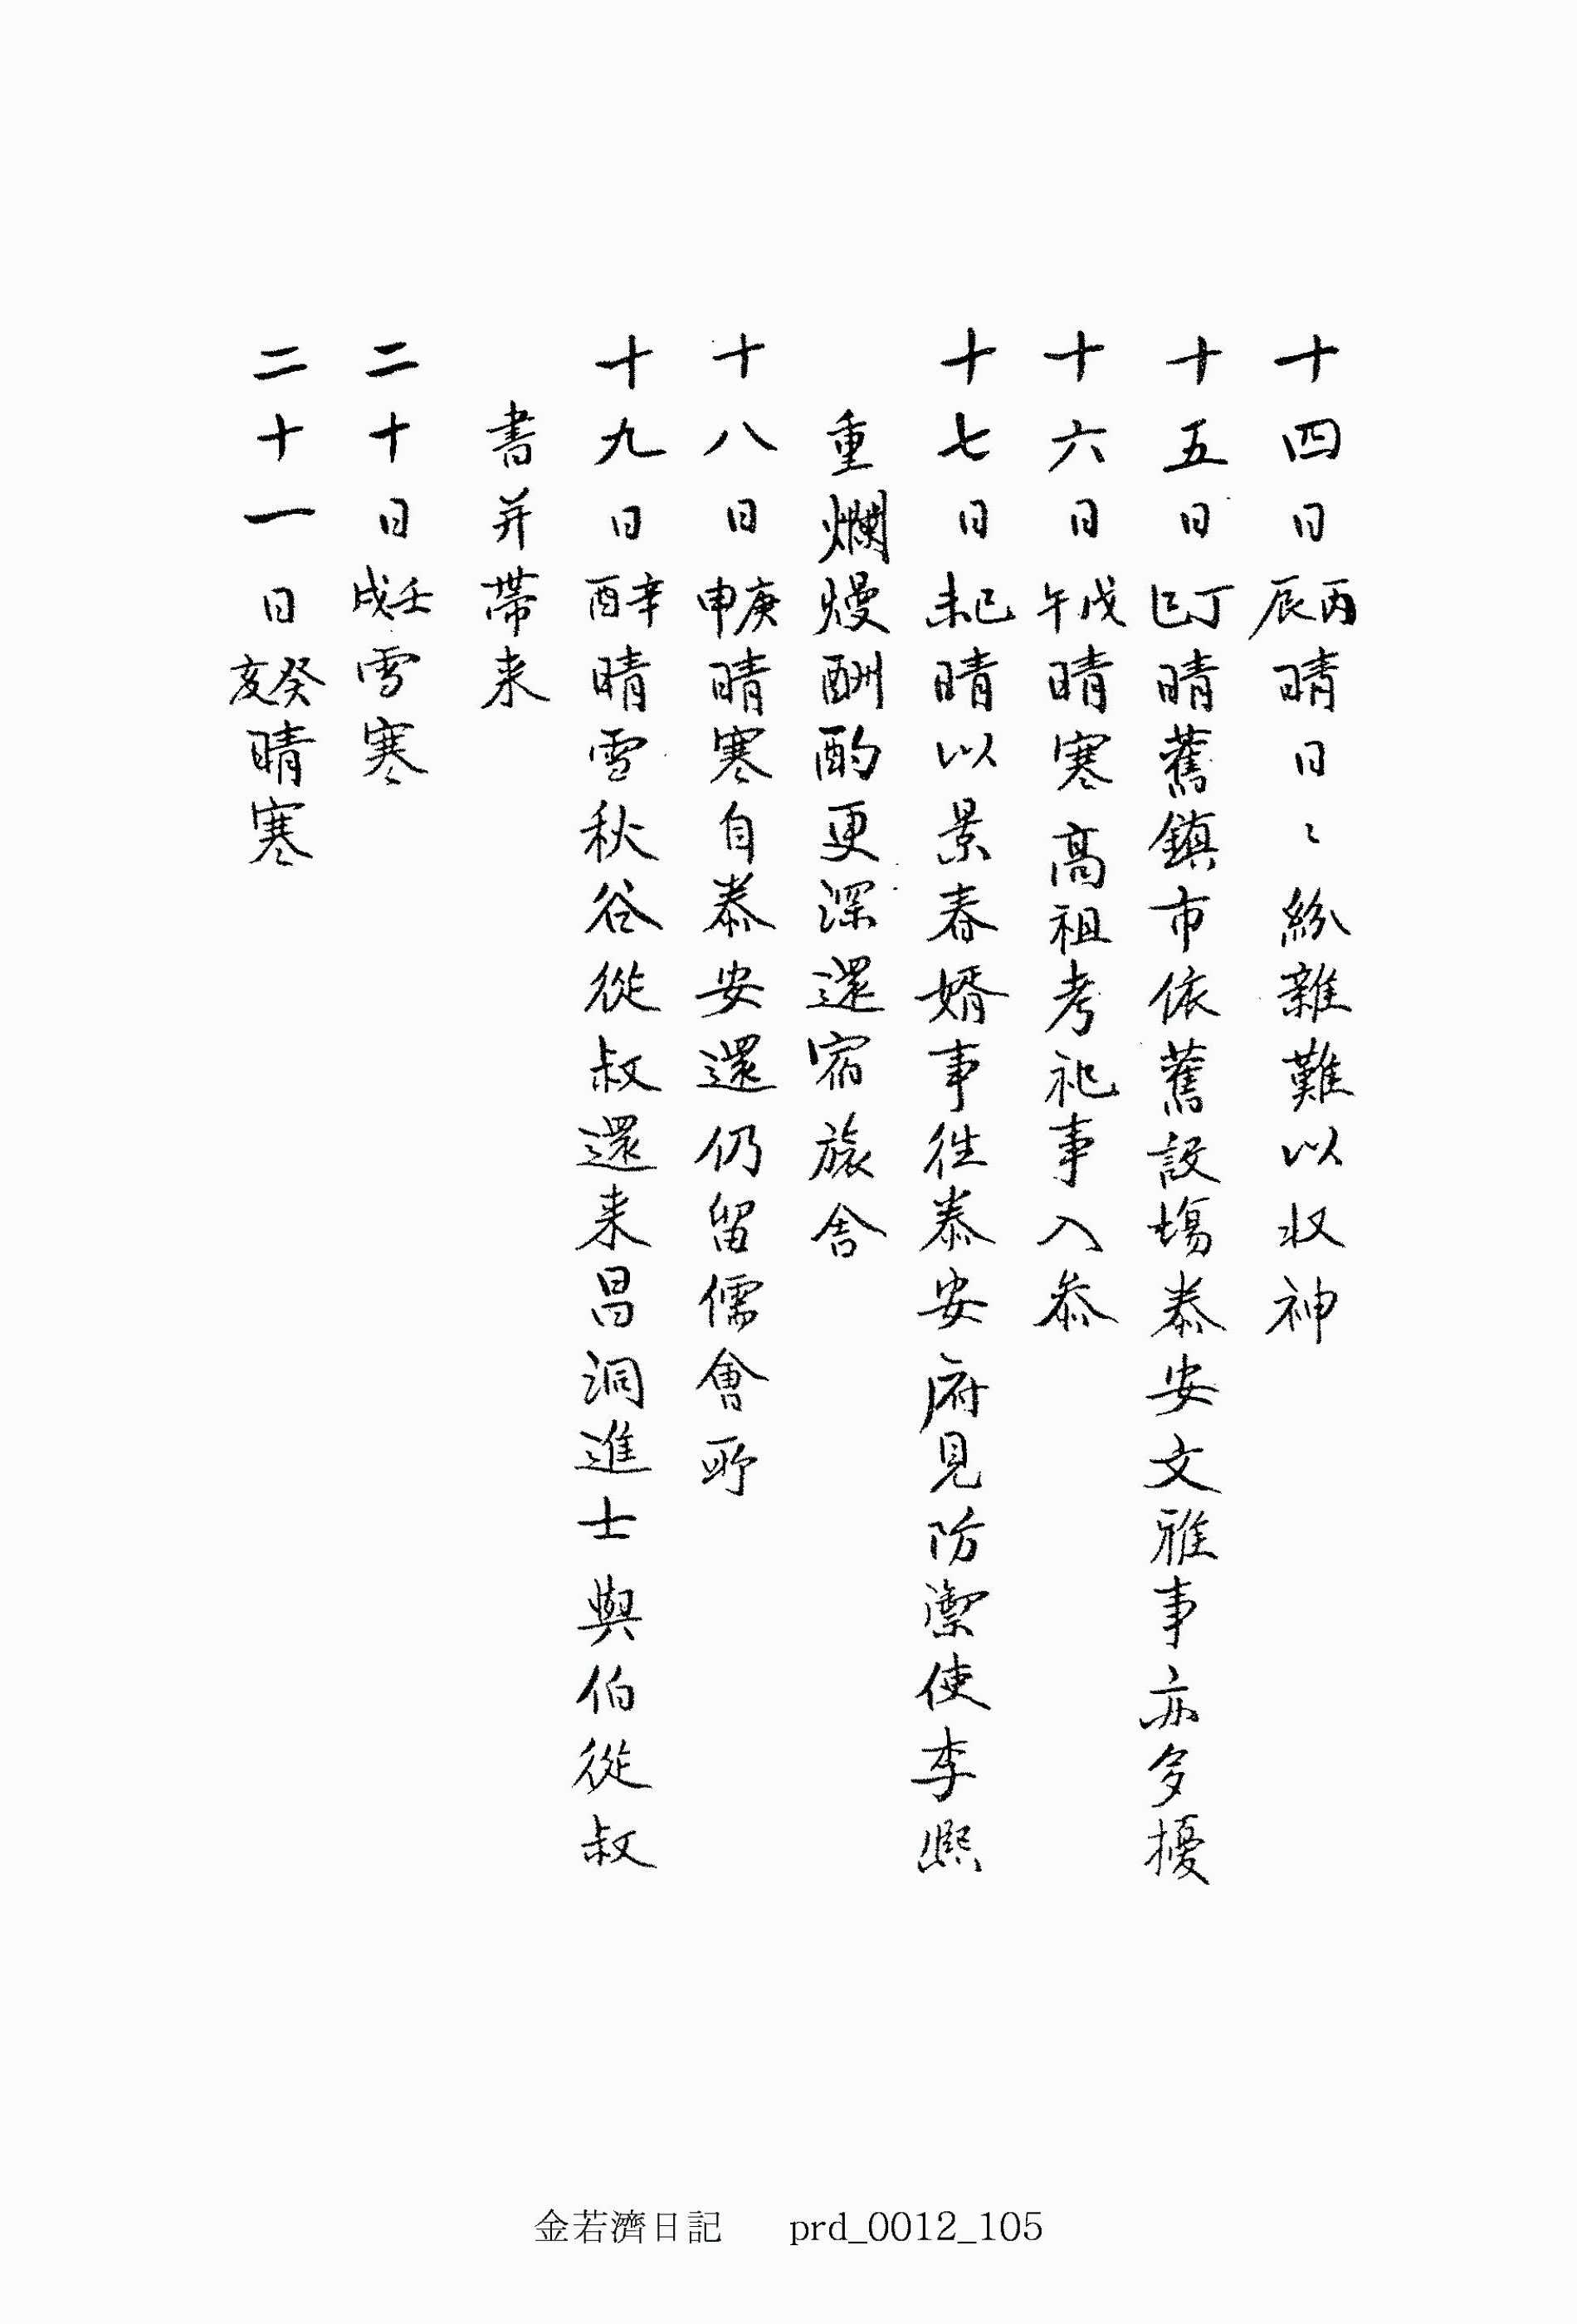 十四日丙辰晴日〻紛雜難以収神
十五日丁巳晴舊鎮市依舊設場泰安文雅事亦多擾
十六日戊午晴寒高祖考祀事入叅
十七日己未晴以景春婚事徃泰安府見防禦使李熙
重爛熳酬酌更深還宿旅舍
十八日庚申晴寒自泰安還仍留儒會所
十九日辛酉晴雪秋谷從叔還来昌洞進士與伯從叔
書并帶来
二十日壬戌雪寒
二十一日癸亥晴寒
金若濟日記 prd_0012_105